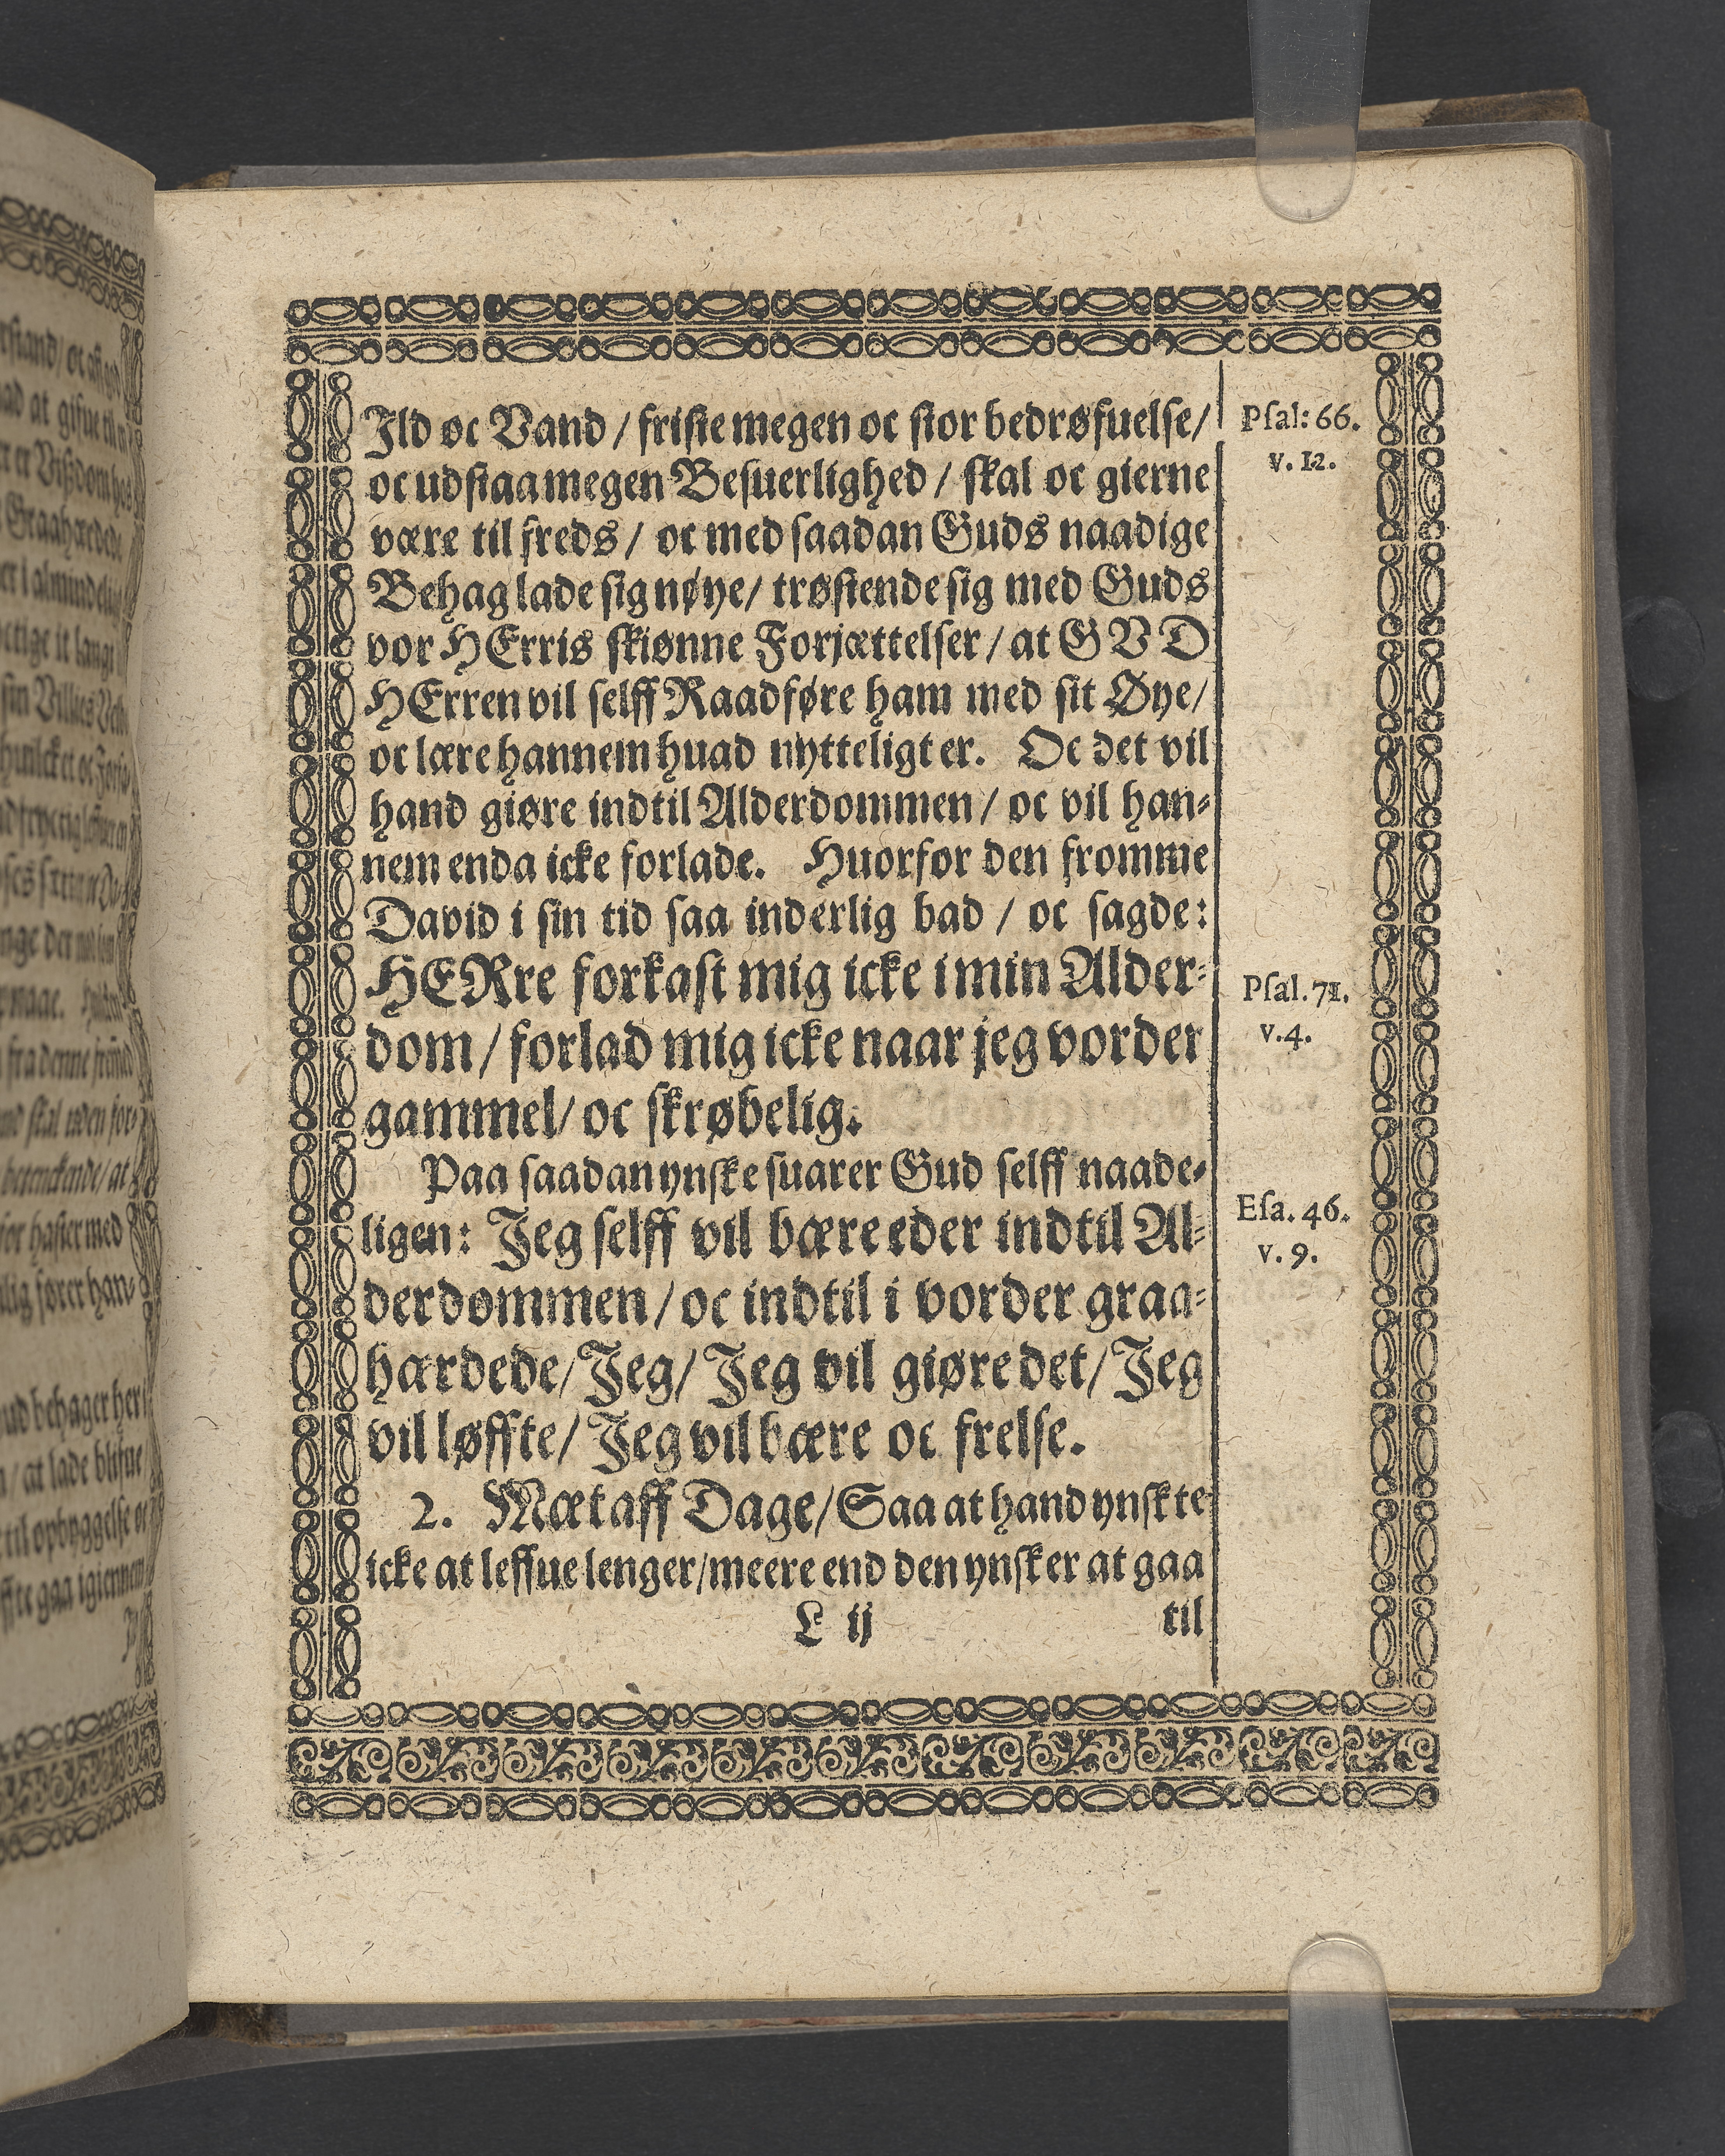 Jld oc Vand / friste megen oc stor bedrøfuelse/
oc udstaa megen Besuerlighed / skal oc gierne
være til freds / oc med saadan Guds naadige
Behag lade sig nøye/ trøstende sig med Guds
vor HErris skiønne Forjættelser / at GVD
HErren vil selff Raadføre ham med sit Øye/
oc lære hannem huad nytteligt er. Oc det vil
hand giøre indtil Alderdommen / oc vil han-
nem enda icke forlade. Huorfor den fromme
David i sin tid saa inderlig bad / oc sagde:
HERre forkast mig icke i min Alder-
dom / forlad mig icke naar jeg vorder
gammel/ oc skrøbelig.
Paa saadan ynske suarer Gud selff naade-
ligen: Jeg selff vil bære eder indtil Al-
derdommen / oc indtil i vorder graa-
hærdede/ Jeg/ Jeg vil giøre det/ Jeg
vil løffte/ Jeg vil bære oc frelse.
2. Mæt aff Dage/ Saa at hand ynskte
icke at leffue lenger/ meere end den ynsker at gaa
L ij til
Psal: 66.
v. 12.
Psal. 71.
v. 4.
Esa. 46.
v. 9.